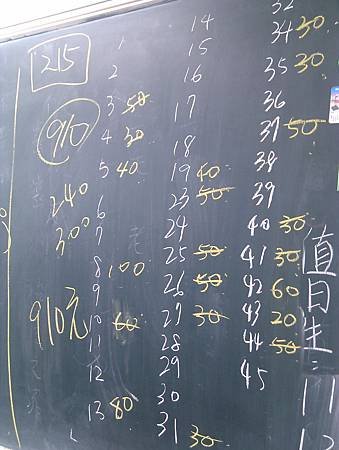 215
910
240
300
910元
1
2
3 50
4 30
5 40
6
7
8 100
9
10 60
11
12
13 80
14
15
16
17
18
19 40
23 50
24
25 50
26 50
27 30
28
29
30
31 30
32
34 30
35 30
36
37 50
38
39
40 30
41 30
42 60
43 20
44 50
45
值日生:
11
12